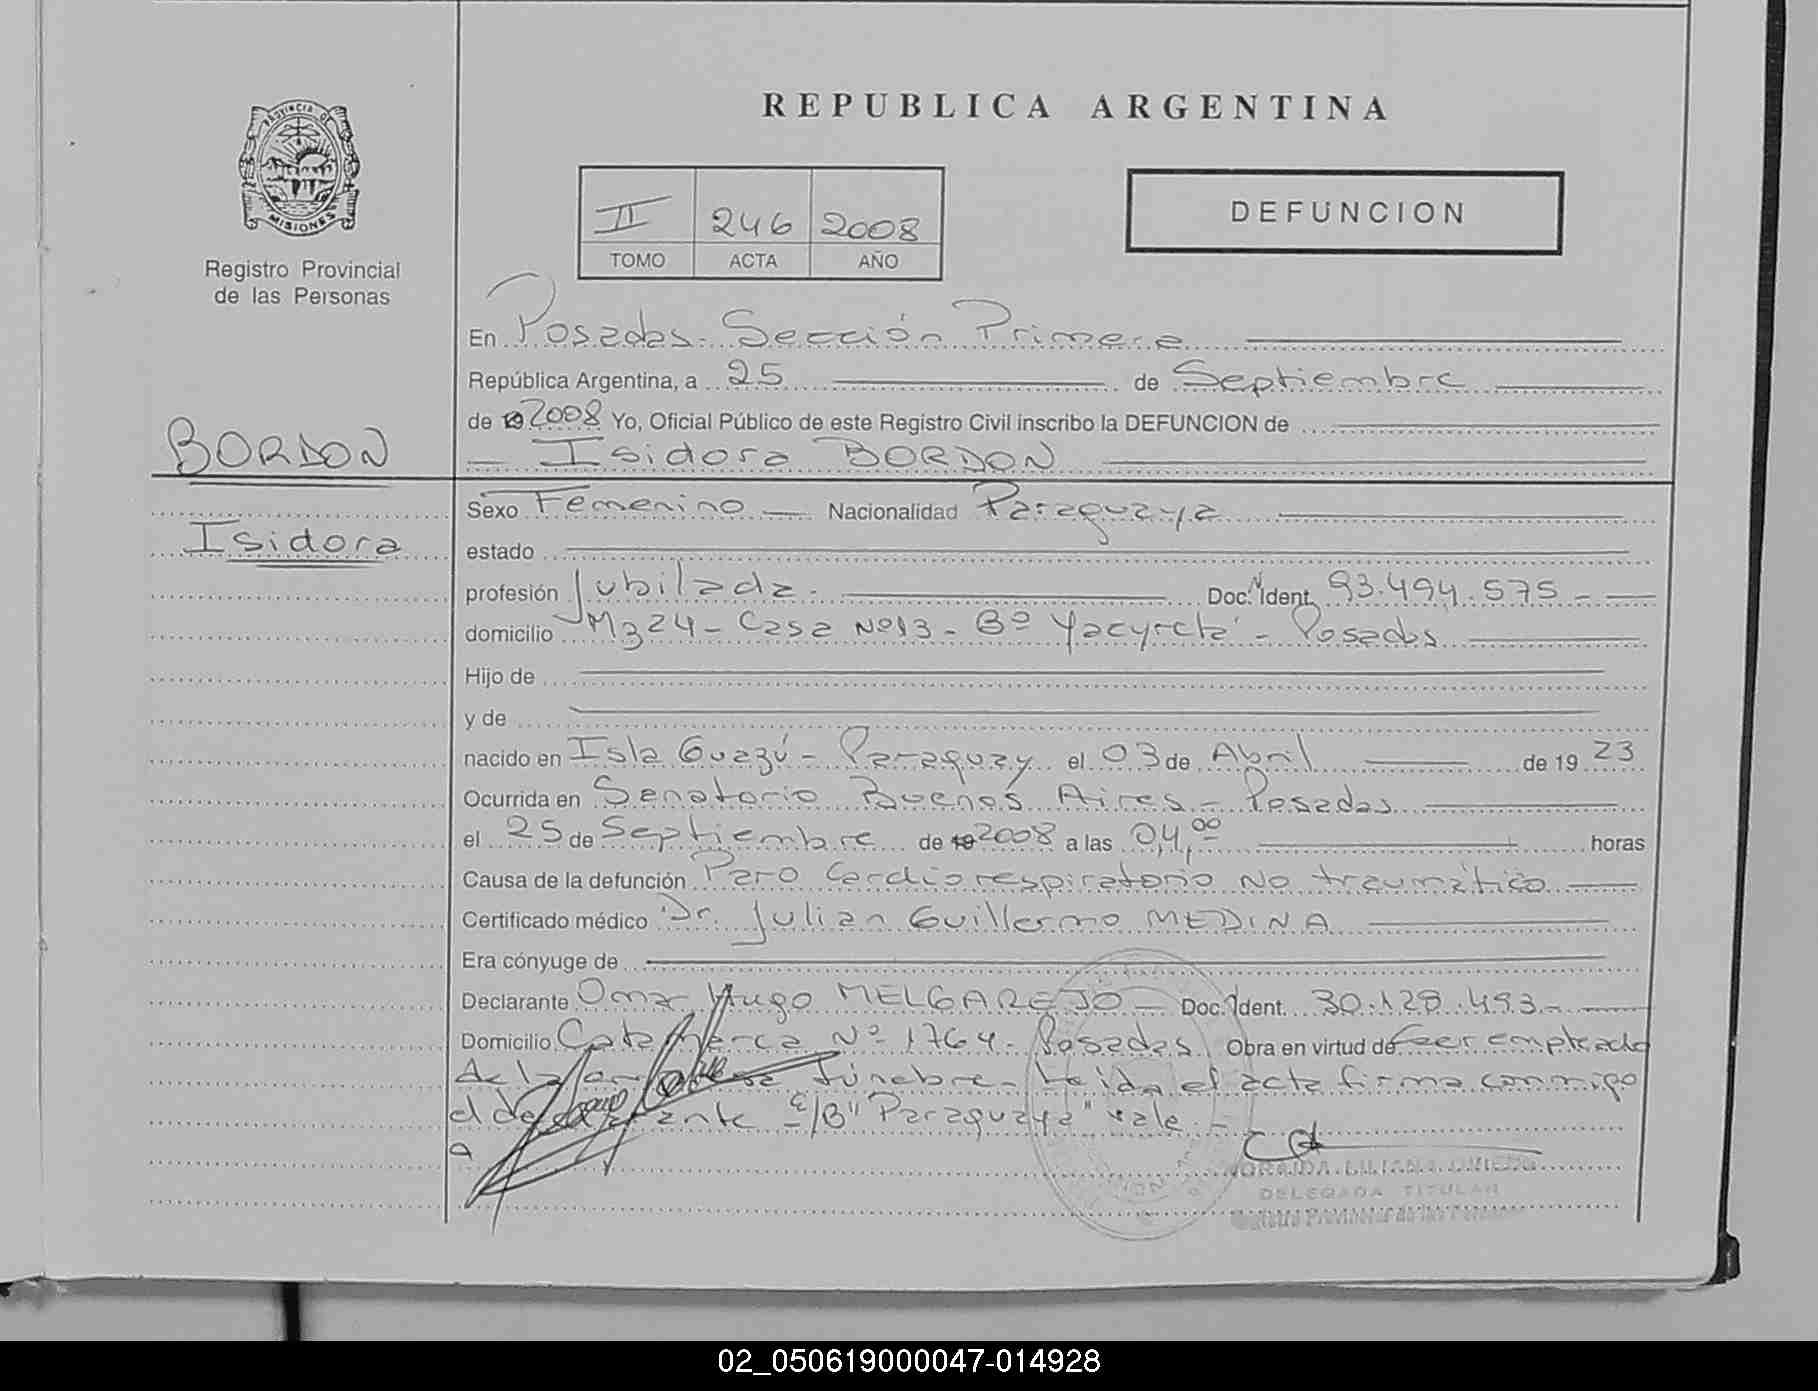 REPUBLICA ARGENTINA
PROVINCIA DE
MISIONES
II 246 2008
TOMO ACTA AÑO
DEFUNCION
Registro Provincial
de las Personas
BORDON
Isidora
En Posadas - Sección Primera
República Argentina, a 25 de Septiembre
de 19 2008 Yo, Oficial Público de este Registro Civil inscribo la DEFUNCION de
Isidora BORDON
Sexo Femenino Nacionalidad Paraguaya
estado
profesión Jubilada. Doc. N Ident. 93.494.575 -
domicilio Mz 24 - Casa Nº 13 - Bº Yacyretá - Posadas
Hijo de
y de
nacido en Isla Guazú - Paraguay el 03 de Abril de 19 23
Ocurrida en Sanatorio Buenos Aires - Posadas
el 25 de Septiembre de 19 2008 a las 04,00 horas
Causa de la defunción Paro Cardiorespiratorio No traumático
Certificado médico Dr. Julian Guillermo MEDINA
Era cónyuge de
Declarante Omar Hugo MELGAREJO - Doc. Ident. 30.128.493 -
Domicilio Catamarca Nº 1764 - Posadas Obra en virtud de ser empleado
de la fúnebre - Leida el acta firma conmigo
el declarante - E/B "Paraguaya" vale -
LILIANA
DELEGADA TITULAR
Registro Provincial de las Personas
02_050619000047-014928